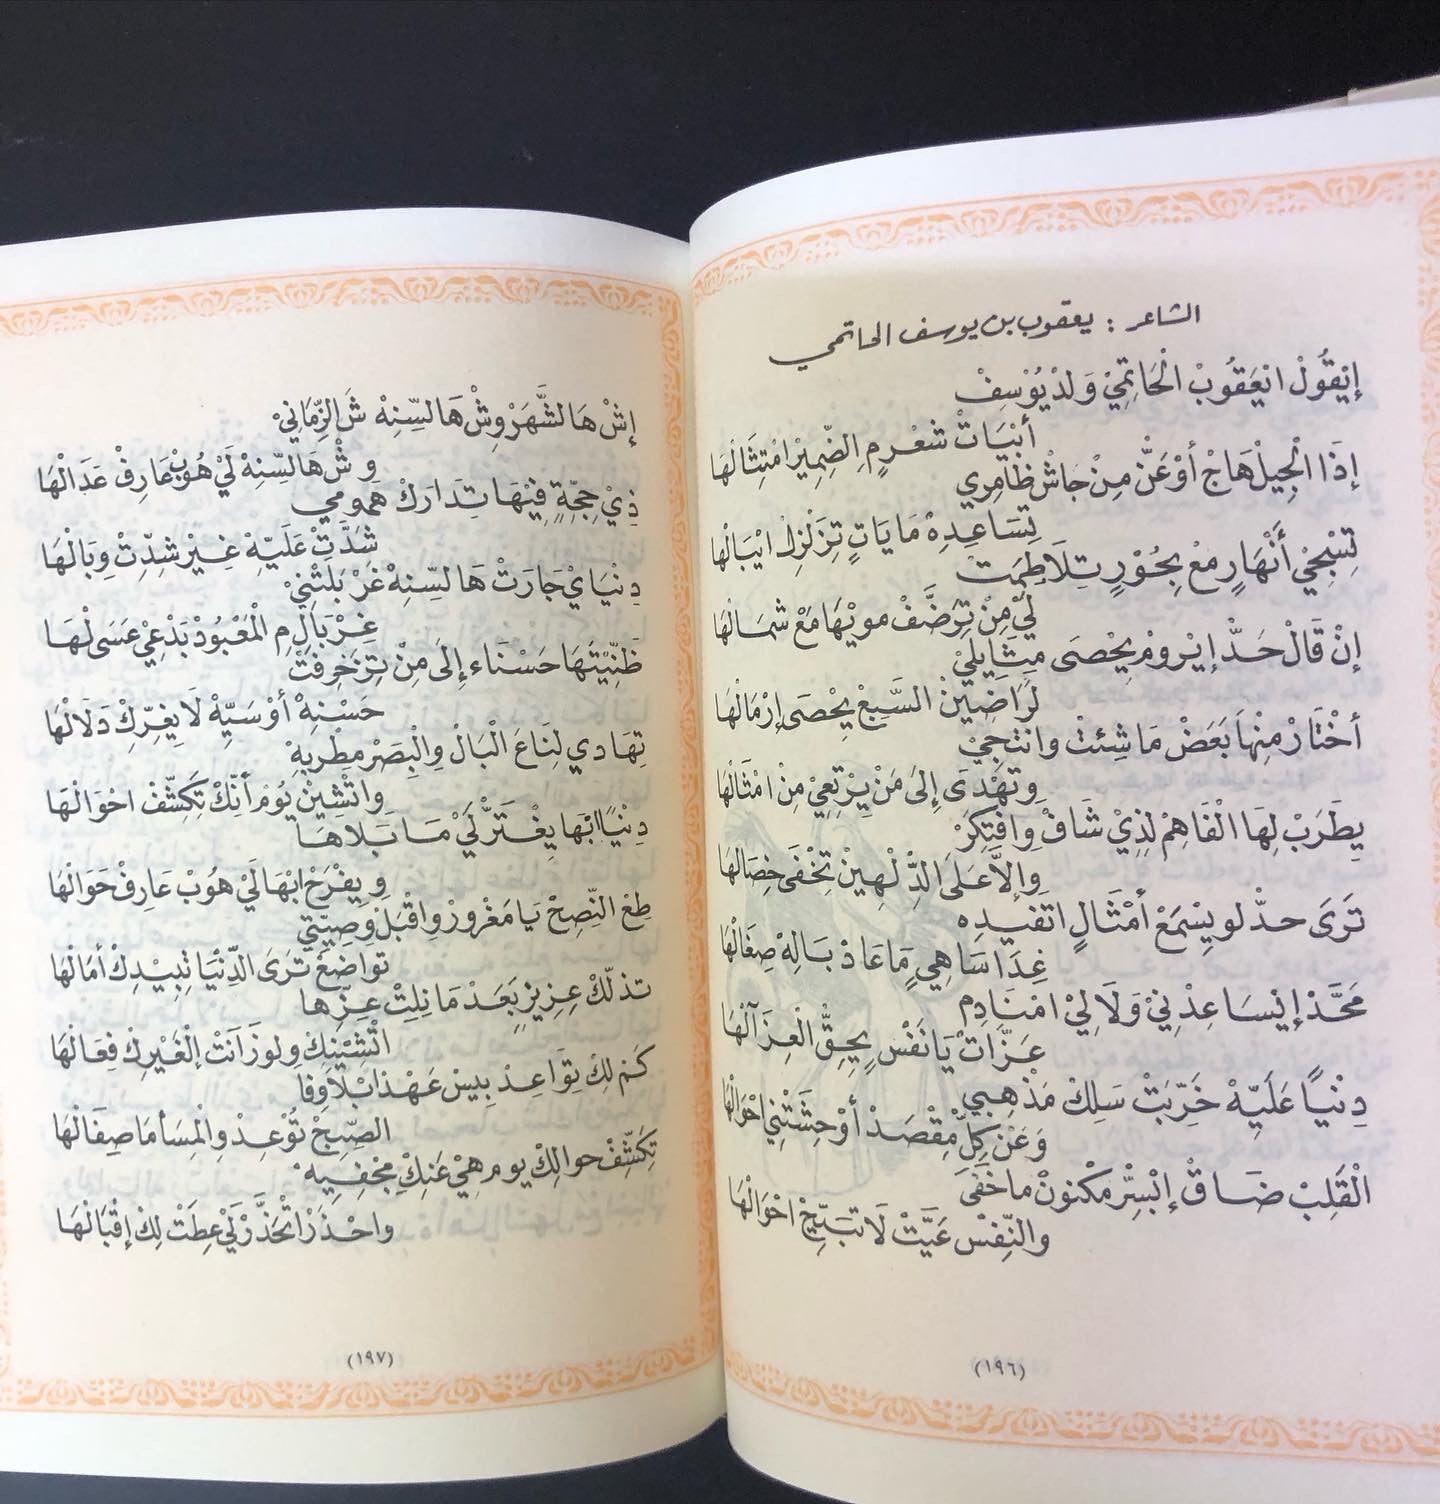 الشاعر : يعقوب بن يوسف الحاتمي
إيْقُولْ انْعَقُوبْ الْحَاتِمِيْ وَلدْ يُوْسِفْ
أبْيَاتْ شعْرٍ مِ الضِّمِيْر امْتِثَالْهَا
إذَا الْجِيلْ هَاجْ أوْ عَنَّ مِنْ جَاشْ ظَامِرِي
تِسَاعِدِهْ مَا يَاتٍ تِزَلْزِلْ ابْبَالْهَا
تِسْجِيْ أنْهَارٍ مَعْ بِحُوْرٍ تِلَاطِمَتْ
لَيْ مِنْ تِرَضَّفْ مويْهَا مَعْ شمَالْهَا
إنْ قَالْ حَدّ إيْرومْ يِحْصَى مِثَايْلِيْ
لَرَاضِيْنْ السَّبِعْ يِحْصَى إرْمَالْهَا
أخْتَارْ مِنْهَا بَعَضْ مَا شِئتْ وانتجِيْ
وتهْدَى إلَى مَنْ يِرْتِعِيْ مِنْ امْثَالْهَا
يِطَرَبْ لِهَا الْفَاهِمْ لِذِيْ شَافْ وافْتِكَرْ
وإلَّا عَلَى الدِّلْهِينْ تِخْفَى خِصَالْهَا
تَرَى حدّ لو يِسْمَعْ أمْثَالٍ اتْفِيدِه
غِدَا سَاهِيٍ مَا عَادْ بَالِهْ صِغَالْهَا
مَحَّدْ إيْسَاعِدْنِيْ وَلَا لِيْ امْنَادِم
عَزَّاتْ يَا نَفْسٍ يِحِقّ الْعِزَا لْهَا
دِنْيَا عَلَيِّهْ خَرِّبَتْ سَلِكْ مَذْهِبِي
وَعَنْ كِلّ مِقْصَدْ أوْحِشَتْنِي احْوَالْهَا
الْقَلِبْ ضَاقْ إبْسِّرّ مَكْنونْ مَا خَفَى
والنّفْس عَيَّتْ لَا تبَدِّيْ احْوَالْهَا
(١٩٦)
إشْ هَا لشَّهَرْ وِشْ هَا لسِّنِهْ شَ الزِّمَانِيْ
وشْ هَا لسِّنِهْ لَيْ هُوبْ عَارِفْ عَدَالْهَا
ذِيْ حِجِّةٍ فِيْهَا تِدَارَكْ هَمُومِي
شَدَّتْ عَلَيِّهْ غِيْرْ شِدِّتْ وِبَالْهَا
دِنْيَايْ جَارَتْ هَا لسِّنِهْ غَرْبَلَتْنِيْ
غِرْبَالٍ مِ الْمَعْبُودْ بَدْعِيْ عَسَى لْهَا
ظَنِّيْتَهَا حَسْنَاء إلَى مِنْ تِزَخِرَفَتْ
حَسْنِهْ أوْ سَيِّهْ لَا يِغِرِّكْ دَلَالْهَا
تِهَادِي لِنَاعَ الْبَالْ والْبِصَرْ مطْرِيهْ
وانْشِيْنْ يُومْ أنِّكْ تِكَشِّفْ احْوَالْهَا
دِنْيًا ابْهَا يِغْتَرّ لَيْ مَا بَلَاهَا
ويِفْرَحْ ابْهَا لَيْ هُوبْ عَارِفْ حَوَالْهَا
طِعْ النِّصِحْ يَا مَغْرورْ واقْبَلْ وِصِيّتِي
تواضَعْ تَرَى الدِّنْيَا تبِيْدِكْ أمَالْهَا
تذلّكْ عِزِيزٍ بَعَدْ مَا نِلِتْ عِزّهَا
انْشيْنِكْ ولو زَانَتْ إلْغَيْرِكْ فِعَالْهَا
كَمْ لِكْ تِوَاعِدْ بِيِسْ عَهْدَ ابْلَا وِفَا
الصّبِحْ تُوْعِدْ والْمِسَا مَا صِفَالْهَا
تِكَشِّفْ حوالِكْ يوم هِيْ عَنِكِ مخْفِيهْ
واحْذَرْ اتْحَذَّرْ لَيْ عِطَتْ لِكْ إقْبَالْهَا
(١٩٧)